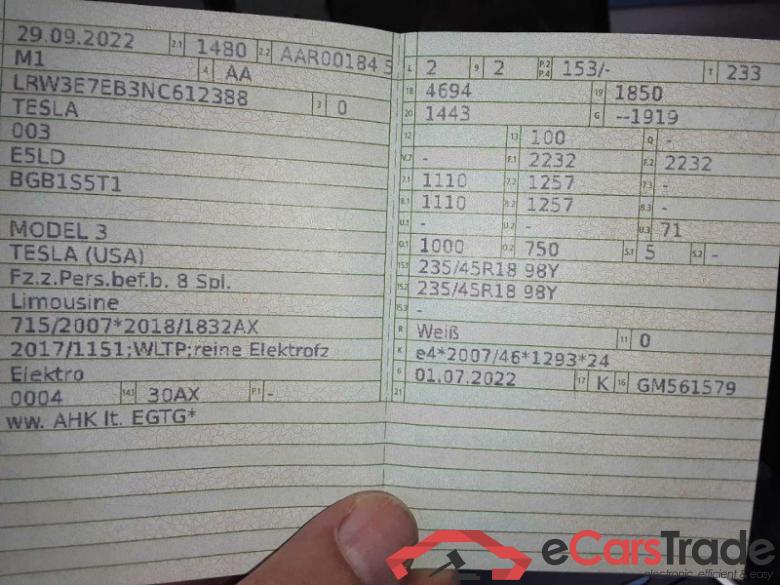 29.09.2022 2.1 1480 2.2 AAR00184 5
M1 4 AA
LRW3E7EB3NC612388 3 0
TESLA
003
E5LD
BGB1S5T1
MODEL 3
TESLA (USA)
Fz.z.Pers.bef.b. 8 Spl.
Limousine
715/2007*2018/1832AX
2017/1151;WLTP;reine Elektrofz
Elektro
0004 14.1 30AX P.1 -
ww. AHK lt. EGTG*
L 2 9 2 P.2 P.4 153/- T 233
18 4694 19 1850
20 1443 G --1919
12 13 100 Q -
V.7 - F.1 2232 F.2 2232
7.1 1110 7.2 1257 7.3 -
8.1 1110 8.2 1257 8.3 -
U.1 - U.2 - U.3 71
O.1 1000 O.2 750 S.1 5 S.2 -
15.1 235/45R18 98Y
15.2 235/45R18 98Y
15.3 -
R Weiß 11 0
K e4*2007/46*1293*24
6 01.07.2022 17 K 16 GM561579
21
eCarsTrade
electronic, efficient & easy